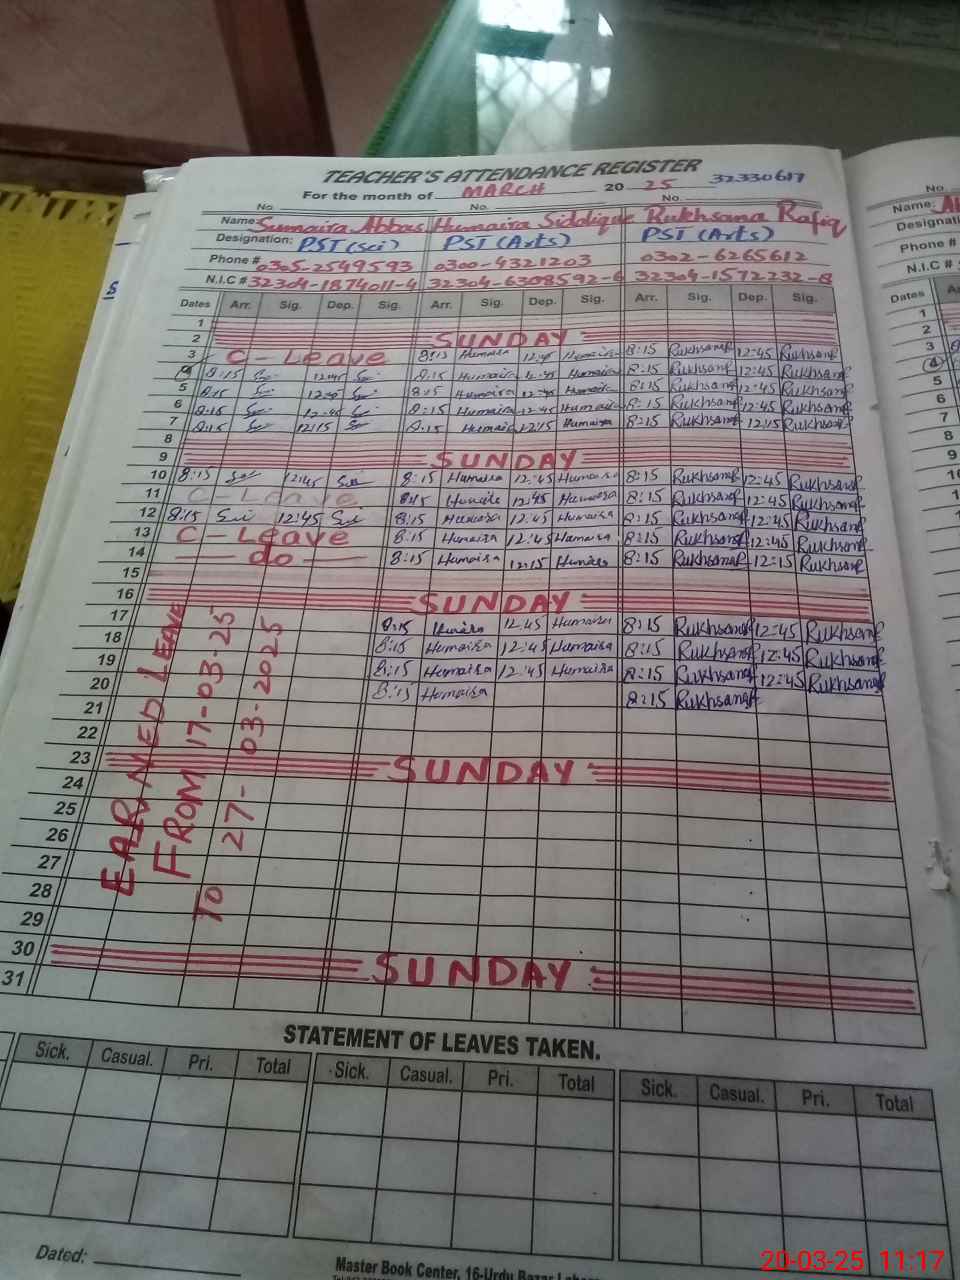 TEACHER'S ATTENDANCE REGISTER
For the month of MARCH 20 25 32330617
No. No. No.
Name: Sumaira Abbas Humaira Siddique Rukhsana Rafiq
Designation: PST (Sci) PST (Arts) PST (Arts)
Phone # 0305-2549593 0300-4321203 0302-6265612
N.I.C # 32304-1874011-4 32304-6308592-6 32304-1572232-8
Dates Arr. Sig. Dep. Sig. Arr. Sig. Dep. Sig. Arr. Sig. Dep. Sig.
1
2 SUNDAY
3 C-Leave 8:15 Humaira 12:45 Humaira 8:15 Rukhsana 12:45 Rukhsana
4 8:15 12:45 8:15 Humaira 12:45 Humaira 8:15 Rukhsana 12:45 Rukhsana
5 8:15 12:45 8:15 Humaira 12:45 Humaira 8:15 Rukhsana 12:45 Rukhsana
6 8:15 12:45 8:15 Humaira 12:45 Humaira 8:15 Rukhsana 12:45 Rukhsana
7 8:15 12:15 8:15 Humaira 12:15 Humaira 8:15 Rukhsana 12:15 Rukhsana
8
9 SUNDAY
10 8:15 12:45 8:15 Humaira 12:45 Humaira 8:15 Rukhsana 12:45 Rukhsana
11 C-Leave 8:15 Humaira 12:45 Humaira 8:15 Rukhsana 12:45 Rukhsana
12 8:15 12:45 8:15 Humaira 12:45 Humaira 8:15 Rukhsana 12:45 Rukhsana
13 C-Leave 8:15 Humaira 12:45 Humaira 8:15 Rukhsana 12:45 Rukhsana
14 do 8:15 Humaira 12:15 Humaira 8:15 Rukhsana 12:15 Rukhsana
15
16 SUNDAY
17 8:15 Humaira 12:45 Humaira 8:15 Rukhsana 12:45 Rukhsana
18 8:15 Humaira 12:45 Humaira 8:15 Rukhsana 12:45 Rukhsana
19 8:15 Humaira 12:45 Humaira 8:15 Rukhsana 12:45 Rukhsana
20 8:15 Humaira 8:15 Rukhsana
21
22
23 SUNDAY
24
25
26
27
28
29
30 SUNDAY
31
EARNED LEAVE
FROM 17-03-25
TO 27-03-2025
STATEMENT OF LEAVES TAKEN.
Sick. Casual. Pri. Total Sick. Casual. Pri. Total Sick. Casual. Pri. Total
Dated:
Master Book Center, 16-Urdu Bazar Lahore
No.
Name:
Designation
Phone #
N.I.C #
Dates
1
2
3
4
5
6
7
8
9
20-03-25 11:17